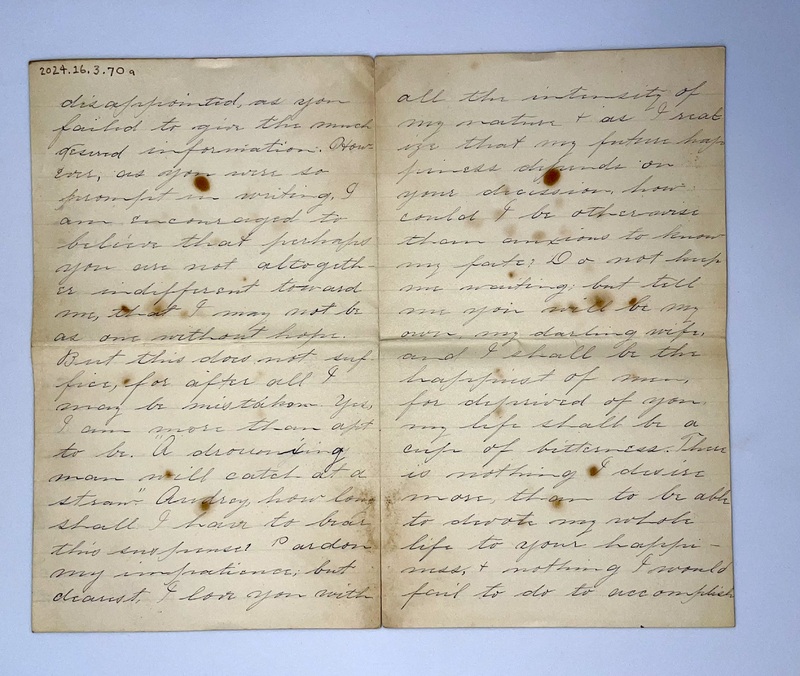 2024.16.3.70a
disappointed, as you
failed to give the much
desired information. How-
ever, as you were so
prompt in writing, I
am encouraged to
believe that perhaps
you are not altogeth-
er indifferent toward
me, that I may not be
as one without hope.
But this does not suf-
fice, for after all I
may be mistaken. Yes,
I am more than apt
to be. "A drowning
man will catch at a
straw." Audrey, how long
shall I have to bear
this suspense? Pardon
my impatience, but
dearest, I love you with
all the intensity of
my nature & as I real
ize that my future hap
piness depends on
your decision, how
could I be otherwise
than anxious to know
my fate? Do not keep
me waiting; but tell
me you will be my
own, my darling wife,
and I shall be the
happiest of men,
for deprived of you
my life shall be a
cup of bitterness. There
is nothing I desire
more, than to be able
to devote my whole
life to your happi-
ness, & nothing I would
fail to do to accomplish